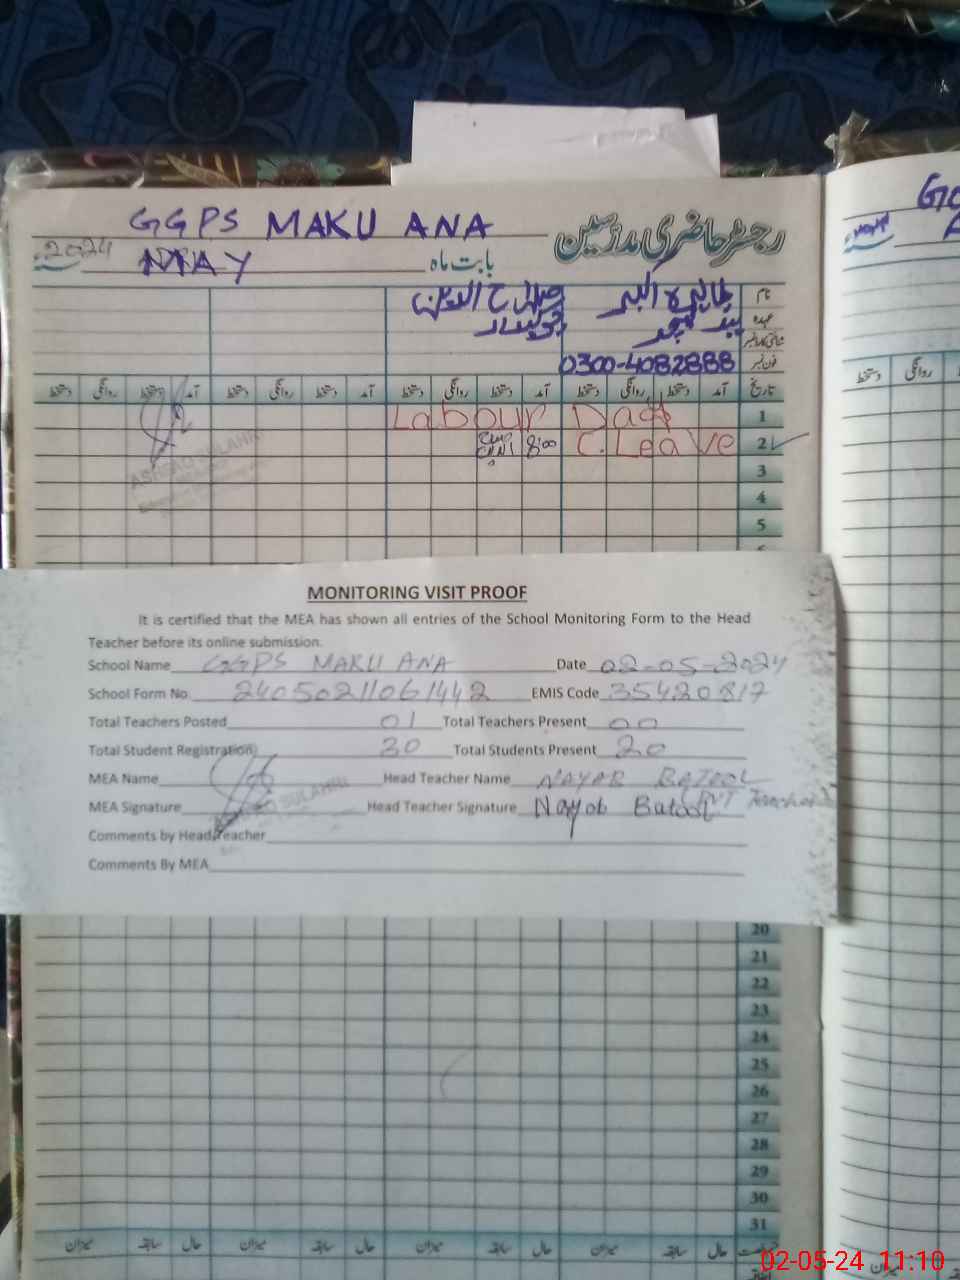 GGPS MAKU ANA
رجسٹر حاضری مدرسین
2024
MAY بابت ماہ
نام طاہرہ اکبر صلاح الدین
عہدہ ہیڈ ٹیچر چوکیدار
شناختی کارڈ نمبر
فون نمبر 0300-4082888
تاریخ آمد دستخط روانگی دستخط آمد دستخط روانگی دستخط آمد دستخط روانگی دستخط آمد دستخط روانگی دستخط
1 Labour Day
2 C. Leave 8:00 صلاح الدین
ASHFAQ SULAHRI
3
4
5
MONITORING VISIT PROOF
It is certified that the MEA has shown all entries of the School Monitoring Form to the Head
Teacher before its online submission.
School Name GGPS MAKU ANA Date 02-05-2024
School Form No 24050211061442 EMIS Code 35420817
Total Teachers Posted 01 Total Teachers Present 00
Total Student Registration 30 Total Students Present 20
MEA Name Head Teacher Name NAYAB BATOOL
MEA Signature Head Teacher Signature Nayab Batool PVT Teacher
SULAHRI
Comments by Head Teacher
Comments By MEA
20
21
22
23
24
25
26
27
28
29
30
31
حال سابقہ میزان حال سابقہ میزان حال سابقہ میزان حال سابقہ میزان
02-05-24 11:10